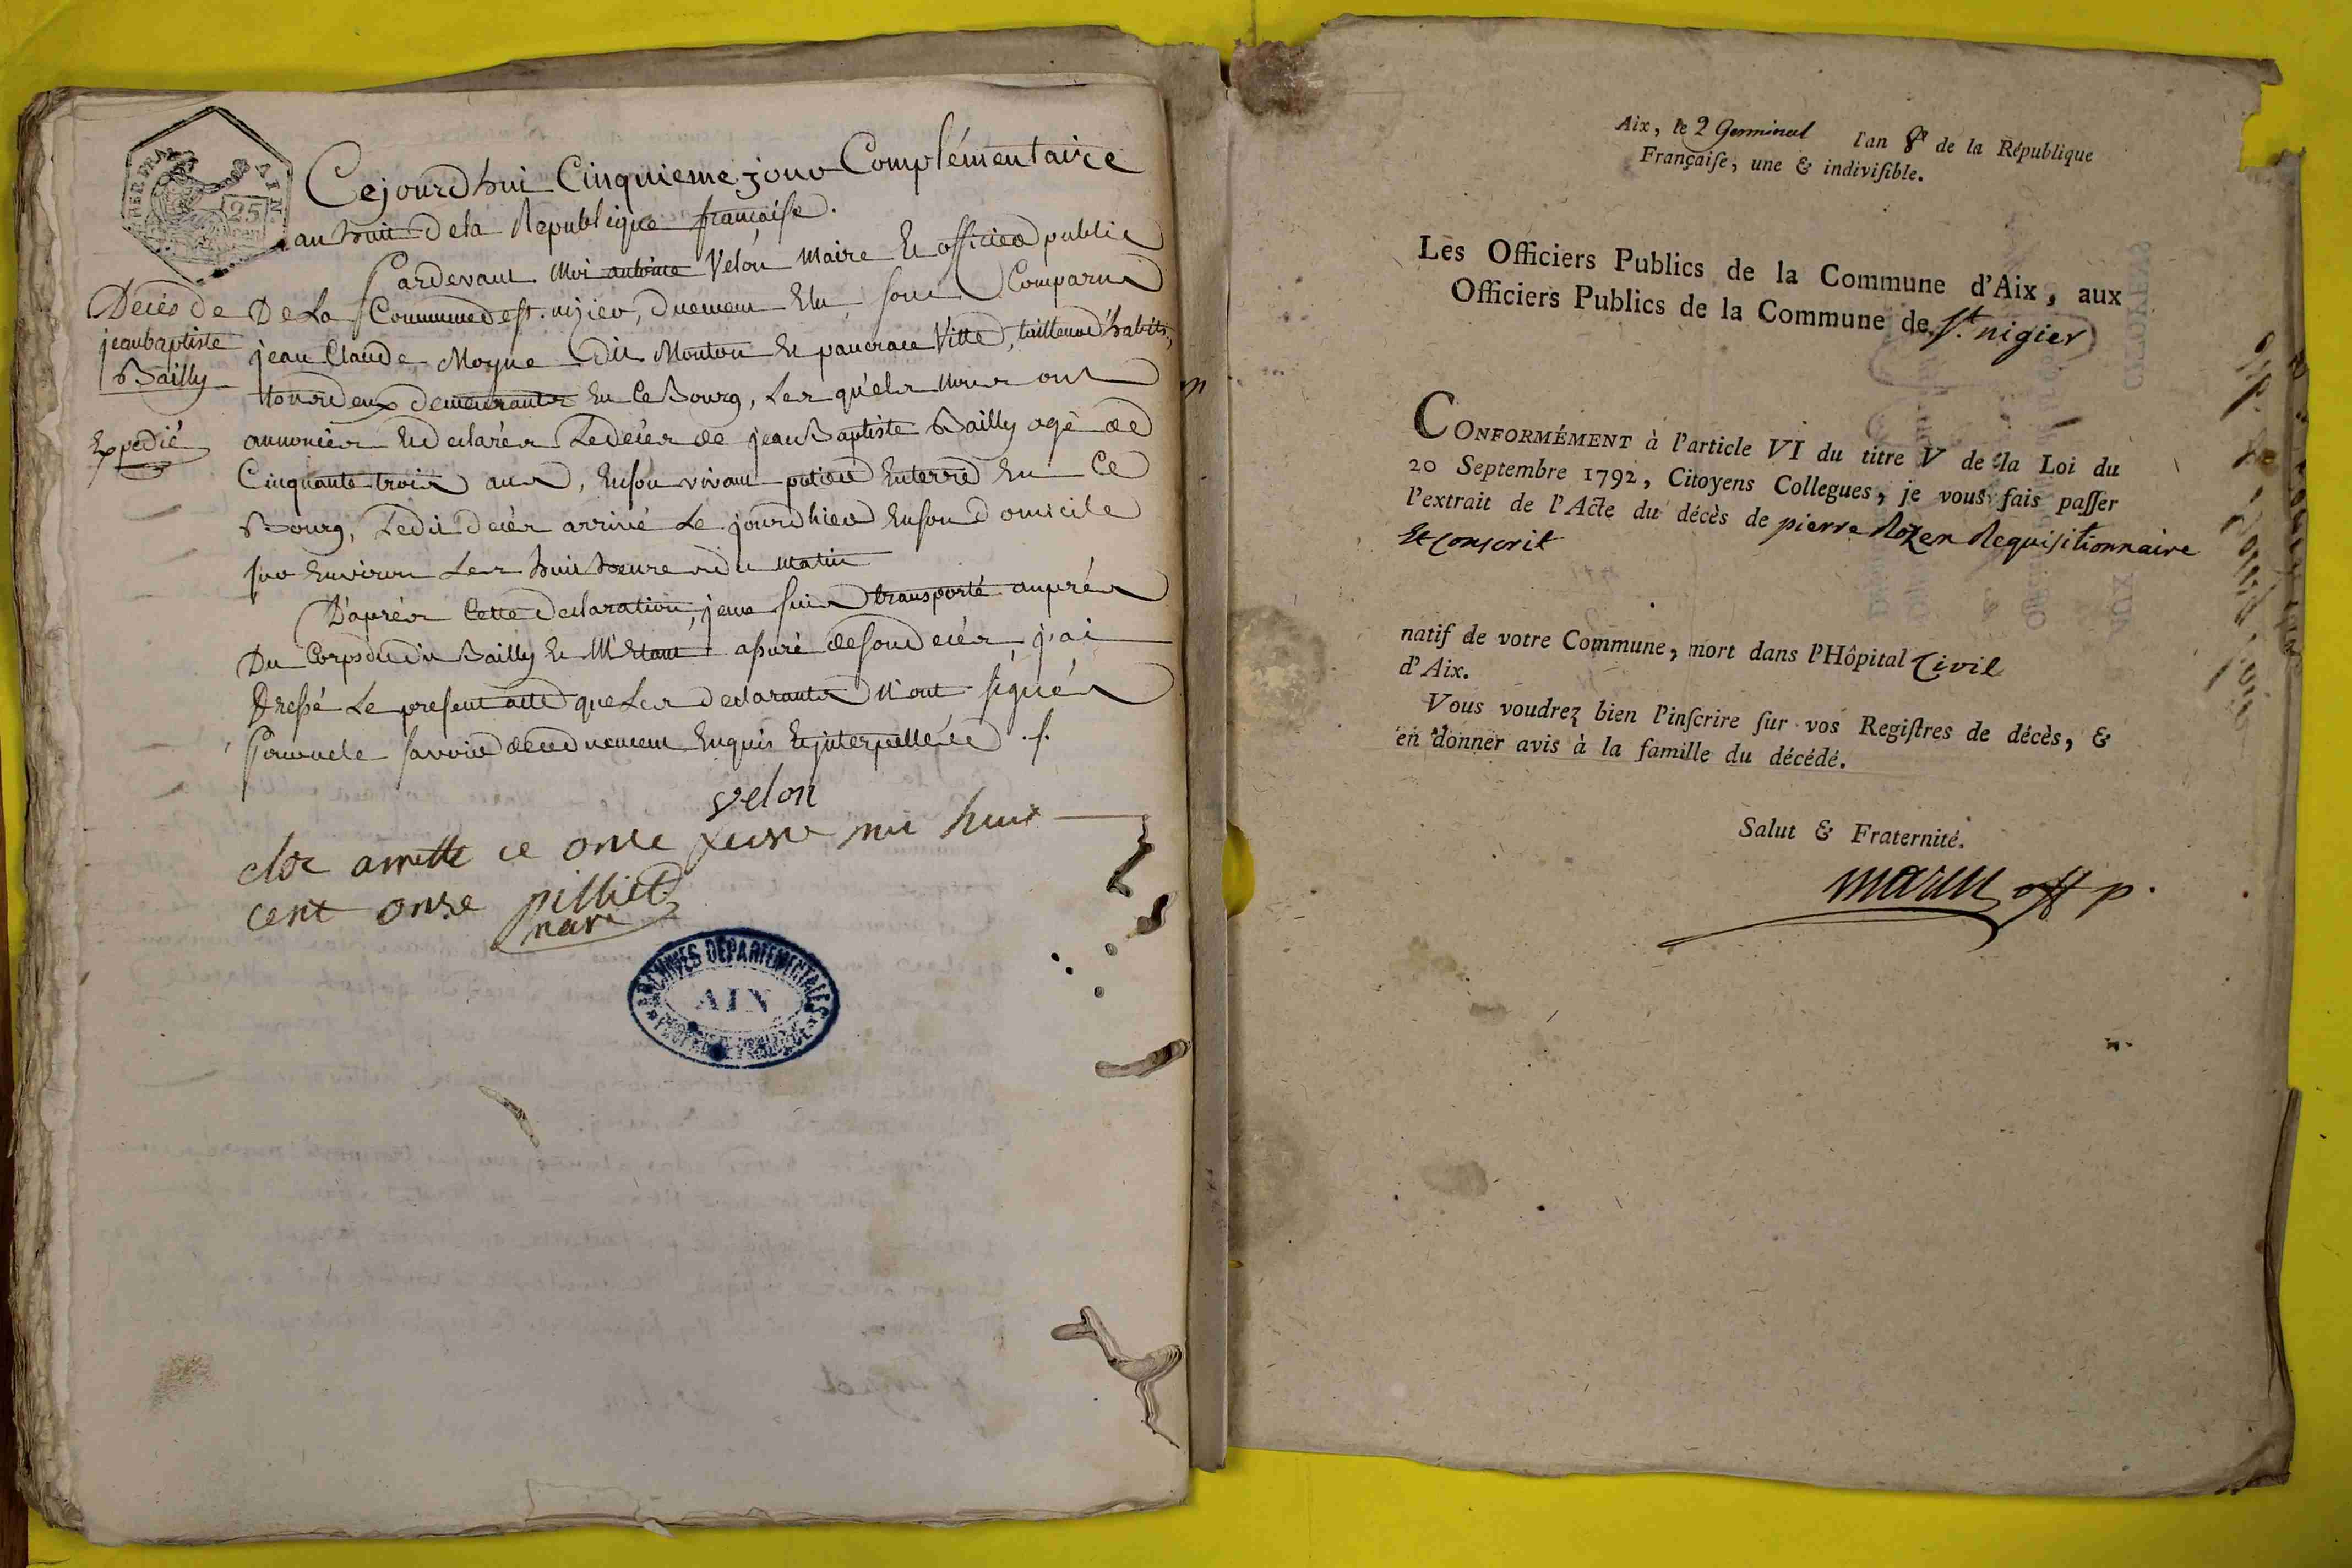 REP. FRA.
AIN
25
CEN
Cejourdhui Cinquieme jour Complémentaire
an huit dela Republique française.
Pardevant Moi antoine Velon Maire Et officier public
Decès de
jeanbaptiste
Bailly
Expedié
De La Commune de st. nizier, duement Elu, sont Comparus
jean Claude Moyne dit Monton Et pancrace Vitte, tailleur d'habits,
tous deux demeurants En Ce Bourg, Les quels nous ont
annoncés Et declarés Le decès de jean Baptiste Bailly agé de
Cinquante trois ans, En son vivant potier Enterre En Ce
Bourg, Ledit decès arrivé Le jourdhier En son domicile
sur Environ Les huit heures du matin
D'après Cette declaration, je me suis transporté auprés
Du Corps du dit Bailly Et M'Etant assuré de son decés, j'ai
Dressé Le present acte que Les declarants N'ont signés
Pour ne le savoir de ce duement Enquis Et interpellés ./.
velon
clos arretté ce onze mil huit
cent onze pilliet
maire
ARCHIVES DÉPARTEMENTALES
AIN
Aix, le 2 Germinal l'an 8e de la République
Françaiſe, une & indiviſible.
Les Officiers Publics de la Commune d'Aix, aux
Officiers Publics de la Commune de St. nigier
CONFORMÉMENT à l'article VI du titre V de la Loi du
20 Septembre 1792, Citoyens Collegues, je vous fais paſſer
l'extrait de l'Acte du décès de pierre Rozen Requisitionnaire
Et Conscrit
natif de votre Commune, mort dans l'Hôpital Civil
d'Aix.
Vous voudrez bien l'inſcrire ſur vos Regiſtres de décès, &
en donner avis à la famille du décédé.
Salut & Fraternité.
off p.